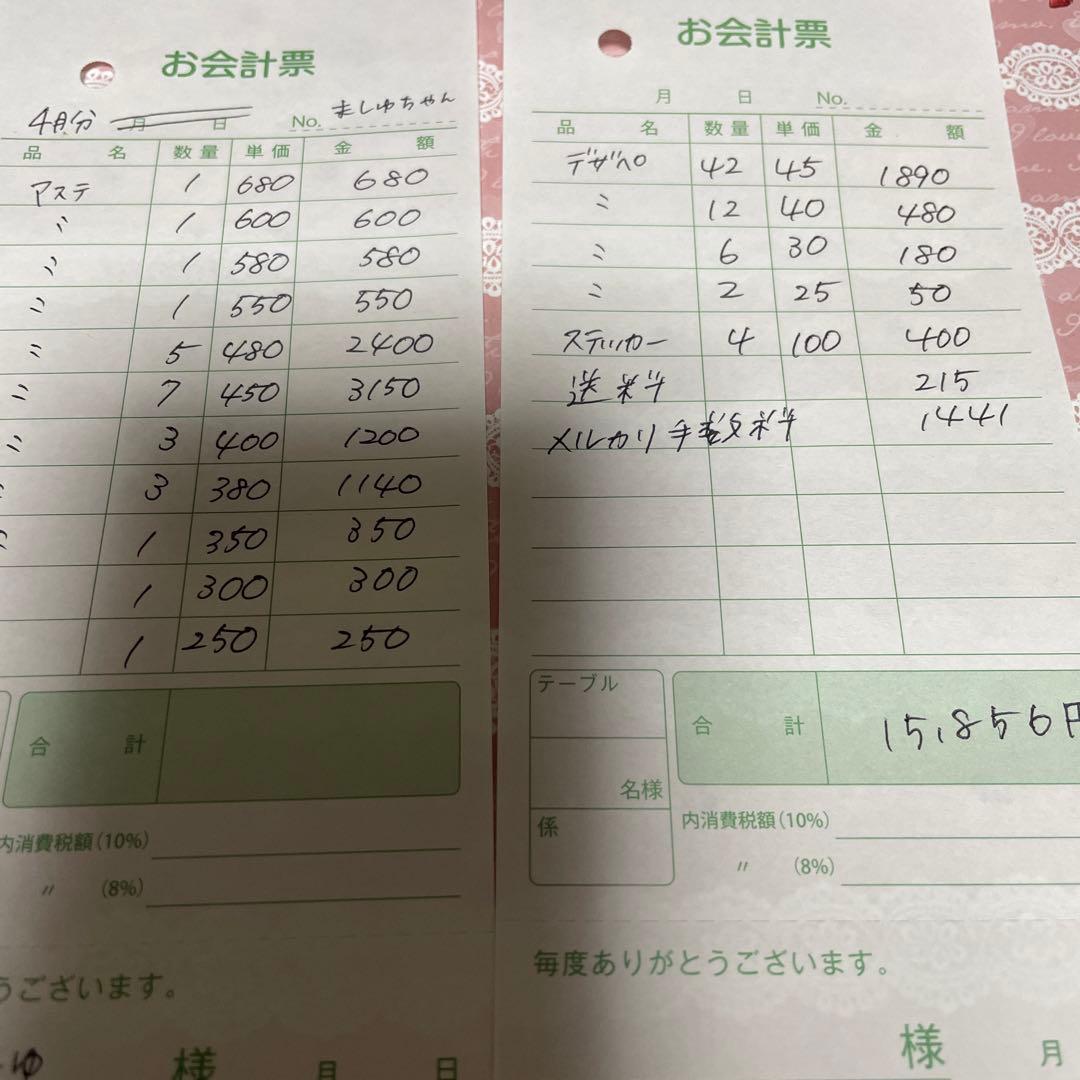 お会計票
4月分 月 日 No. ましゅちゃん
品 名 数量 単価 金 額
アステ 1 680 680
〃 1 600 600
〃 1 580 580
〃 1 550 550
〃 5 480 2400
〃 7 450 3150
〃 3 400 1200
〃 3 380 1140
〃 1 350 350
1 300 300
1 250 250
合 計
内消費税額(10%)
〃 (8%)
うございます。
様 月 日
お会計票
月 日 No.
品 名 数量 単価 金 額
デザペロ 42 45 1890
〃 12 40 480
〃 6 30 180
〃 2 25 50
ステッカー 4 100 400
送料 215
メルカリ手数料 1441
テーブル
名様
係
合 計 15,856円
内消費税額(10%)
〃 (8%)
毎度ありがとうございます。
様 月